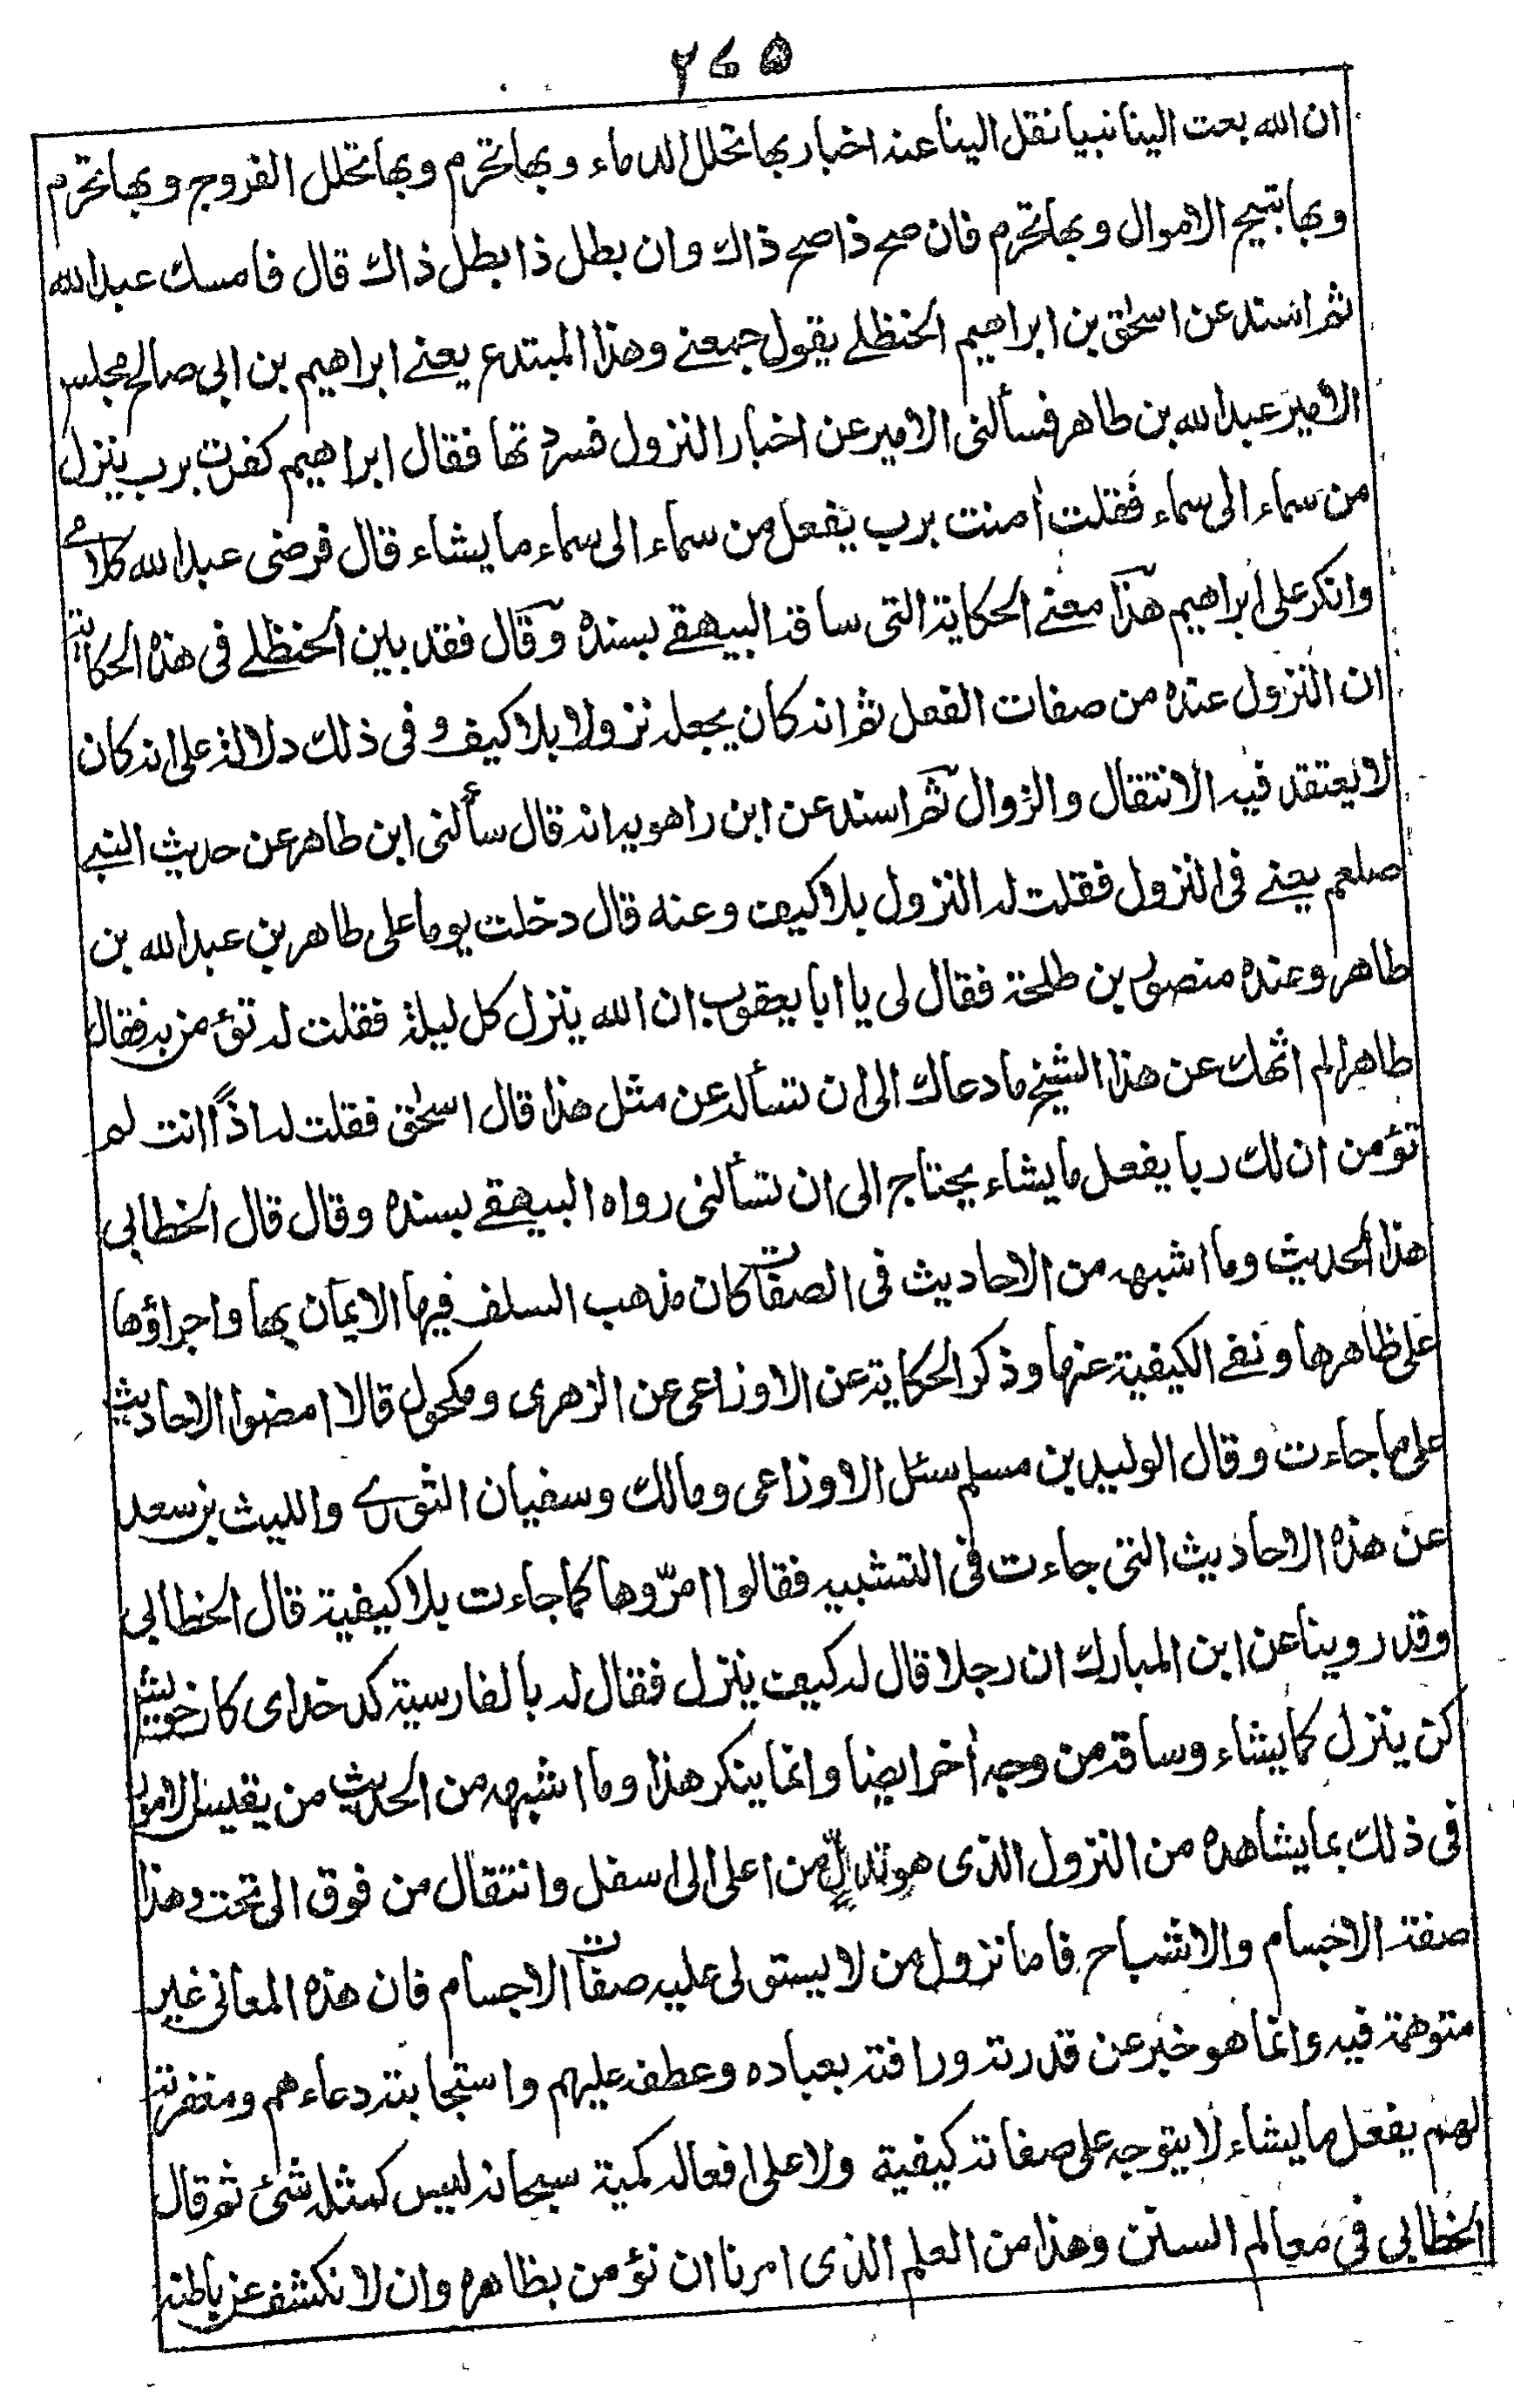 ٢٤٥
ان الله بعث الينا نبيا نقل الينا عنه اخبار بها تحلل الدماء وبها تحرم وبها تحلل الفروج وبها تحرم
وبها تبيح الاموال وبها تحرم فان صح ذا صح ذاك وان بطل ذا بطل ذاك قال فامسك عبد الله
ثم اسند عن اسحٰق بن ابراهيم الحنظلے يقول جمعنے وهذا المبتدع يعنے ابراهيم بن ابى صالح مجلس
الامير عبد الله بن طاهر فسألنى الامير عن اخبار النزول فسردتها فقال ابراهيم كفرت برب ينزل
من سماء الى سماء فقلت اٰمنت برب يفعل من سماء الى سماء ما يشاء قال فرضى عبد الله كلامى
وانكر على ابراهيم هذا معنے الحكاية التى ساقه البيهقے بسنده وقال فقد بين الحنظلے فى هذه الحكاية
ان النزول عنده من صفات الفعل ثم انه كان يجعله نزولا بلا كيف و فى ذلك دلالة على انه كان
لا يعتقد فيه الانتقال والزوال ثم اسند عن ابن راهويه انه قال سألنى ابن طاهر عن حديث النبے
صلعم يعنے فى النزول فقلت له النزول بلا كيف وعنه قال دخلت يوما على طاهر بن عبد الله بن
طاهر وعنده منصور بن طلحة فقال لى يا ابا يعقوب ان الله ينزل كل ليلة فقلت له تؤمن به فقال
طاهر الم انهك عن هذا الشيخ ما دعاك الى ان تسأله عن مثل هذا قال اسحٰق فقلت له اذًا انت لم
تؤمن ان لك ربا يفعل ما يشاء يحتاج الى ان تسألنى رواه البيهقے بسنده وقال قال الخطابى
هذا الحديث وما اشبهه من الاحاديث فى الصفات كان مذهب السلف فيها الايمان بها واجراؤها
على ظاهرها ونفے الكيفية عنها وذكر الحكاية عن الاوزاعى عن الزهرى ومكحول قالا امضوا الاحاديث
على ما جاءت وقال الوليد بن مسلم سئل الاوزاعى ومالك وسفيان الثورے والليث بن سعد
عن هذه الاحاديث التى جاءت فى التشبيه فقالوا امرّوها كما جاءت بلا كيفية قال الخطابى
وقد روينا عن ابن المبارك ان رجلا قال له كيف ينزل فقال له بالفارسية كد خداى كار خويش
كن ينزل كما يشاء وساقه من وجه اٰخر ايضا وانما ينكر هذا وما اشبهه من الحديث من يقيس الامور
فى ذلك بما يشاهده من النزول الذى هو تدلٍّ من اعلى الى اسفل وانتقال من فوق الى تحت وهذا
صفة الاجسام والاشباح فاما نزول من لا يستولى عليه صفات الاجسام فان هذه المعانى غير
متوهمة فيه وانما هو خبر عن قدرته ورافته بعباده وعطفه عليهم واستجابته دعاءهم ومغفرته
لهم يفعل ما يشاء لا يتوجه على صفاته كيفية ولا على افعاله كمية سبحانه ليس كمثله شئ ثم قال
الخطابى فى معالم السنن وهذا من العلم الذى امرنا ان نؤمن بظاهره وان لا نكشف عن باطنه